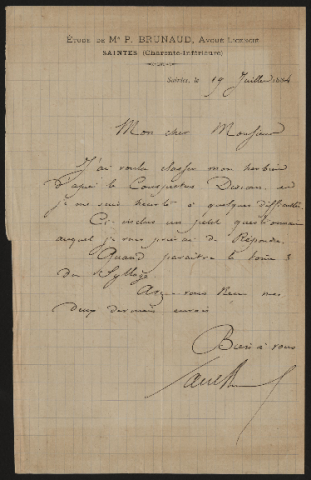 ÉTUDE DE Me P. BRUNAUD, AVOUÉ LICENCIÉ
SAINTES (Charente-Inférieure)
Saintes, le 19 Juillet 1884
Mon cher Monsieur
J'ai voulu classer mon herbier
d'après le Conspectus et
je me suis heurté à quelques difficultés
Ci-inclus un petit questionnaire
auquel je vous prierai de Répondre.
Quand paraitra le tome 3
du Sylloge
Avez-vous reçu mes
deux derniers envois
Bien à vous